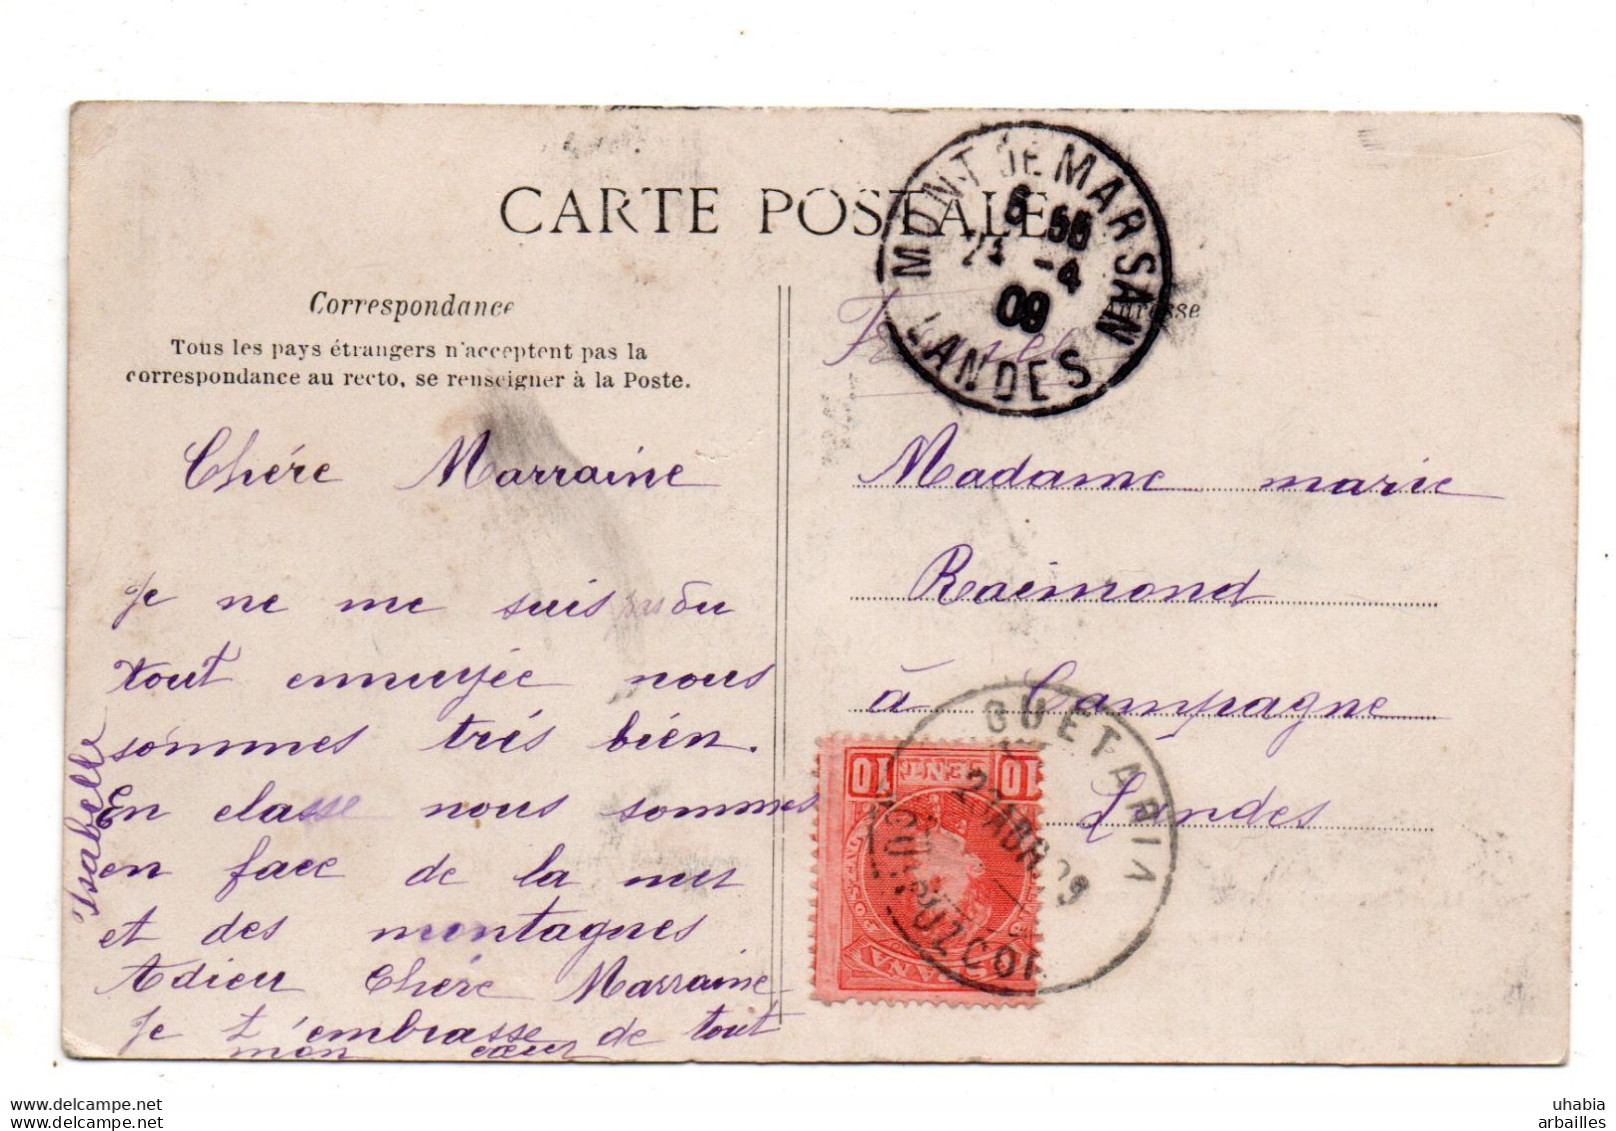 CARTE POSTALE
MONT DE MARSAN
6 55
-4
09
LANDES
Correspondance
Adresse
Tous les pays étrangers n'acceptent pas la
correspondance au recto, se renseigner à la Poste.
Chére Marraine
Je ne me suis pas du
tout ennuyée nous
sommes trés bién.
En classe nous sommes
en face de la mer
et des montagnes
Adieu Chére Marraine
Je t'embrasse de tout
mon cœur
Isabelle
Madame marie
Raimond
à Campagne
Landes
GUETARIA
10 10
www.delcampe.net
www.delcampe.net
uhabia
arbailles